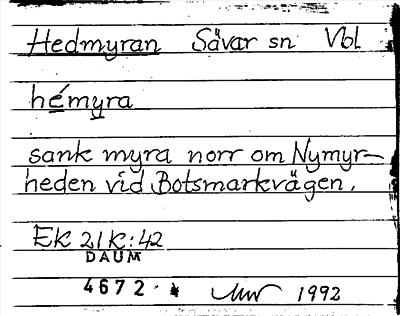 Hedmyran Sävar sn Vbl
hémyra
sank myra norr om Nymyr-
heden vid Botsmarkvägen.
EK 21K:42
DAUM
4672
1992